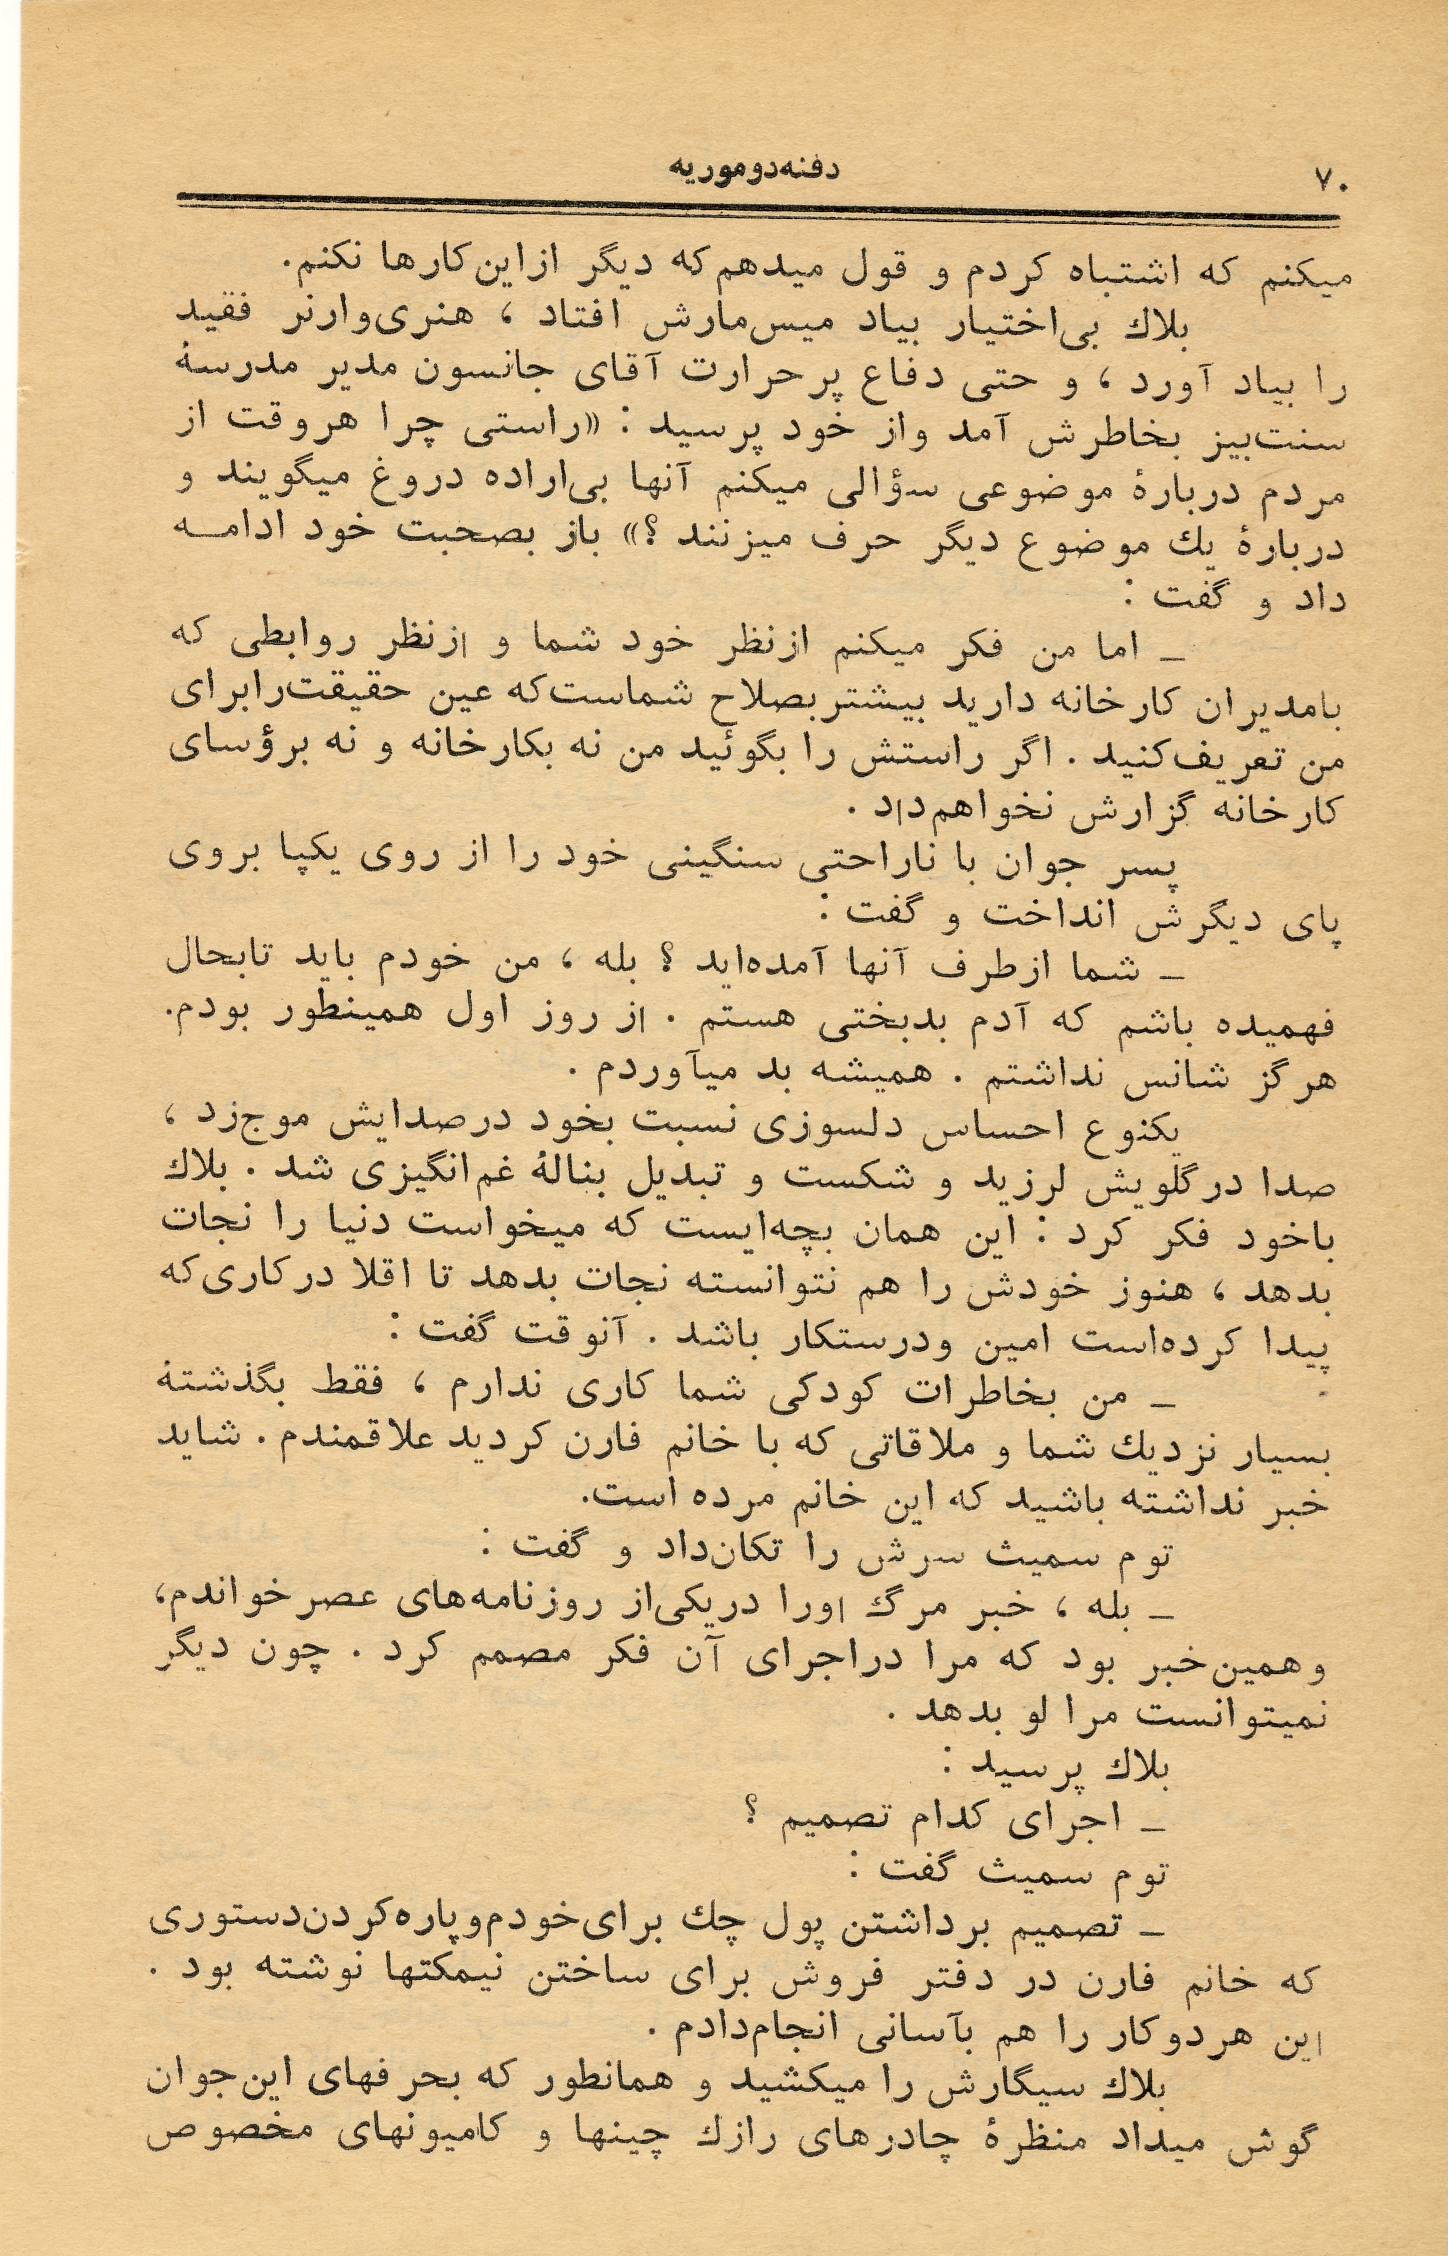 ۷۰
دفنه‌دوموریه
میکنم که اشتباه کردم و قول میدهم‌که دیگر ازاین‌کارها نکنم.
بلاك بی‌اختیار بیاد میس‌مارش افتاد ، هنری‌وارنر فقید
را بیاد آورد ، و حتی دفاع پرحرارت آقای جانسون مدیر مدرسهٔ
سنت‌بیز بخاطرش آمد واز خود پرسید : «راستی چرا هروقت از
مردم دربارهٔ موضوعی سؤالی میکنم آنها بی‌اراده دروغ میگویند و
دربارهٔ یك موضوع دیگر حرف میزنند ؟» باز بصحبت خود ادامـه
داد و گفت :
ــ اما من فکر میکنم ازنظر خود شما و ازنظر روابطی که
بامدیران کارخانه دارید بیشتربصلاح شماست‌که عین حقیقت‌رابرای
من تعریف‌کنید . اگر راستش را بگوئید من نه بکارخانه و نه برؤسای
کارخانه گزارش نخواهم‌داد .
پسر جوان با ناراحتی سنگینی خود را از روی یکپا بروی
پای دیگرش انداخت و گفت :
ــ شما ازطرف آنها آمده‌اید ؟ بله ، من خودم باید تابحال
فهمیده باشم که آدم بدبختی هستم . از روز اول همینطور بودم.
هرگز شانس نداشتم . همیشه بد میآوردم .
یکنوع احساس دلسوزی نسبت بخود درصدایش موج‌زد ،
صدا درگلویش لرزید و شکست و تبدیل بنالهٔ غم‌انگیزی شد . بلاك
باخود فکر کرد : این همان بچه‌ایست که میخواست دنیا را نجات
بدهد ، هنوز خودش را هم نتوانسته نجات بدهد تا اقلا درکاری‌که
پیدا کرده‌است امین ودرستکار باشد . آنوقت گفت :
ــ من بخاطرات کودکی شما کاری ندارم ، فقط بگذشتهٔ
بسیار نزدیك شما و ملاقاتی که با خانم فارن کردید علاقمندم . شاید
خبر نداشته باشید که این خانم مرده است.
توم سمیث سرش را تکان‌داد و گفت :
ــ بله ، خبر مرگ اورا دریکی‌از روزنامه‌های عصرخواندم،
وهمین‌خبر بود که مرا دراجرای آن فکر مصمم کرد . چون دیگر
نمیتوانست مرا لو بدهد .
بلاك پرسید :
ــ اجرای کدام تصمیم ؟
توم سمیث گفت :
ــ تصمیم برداشتن پول چك برای‌خودم‌وپاره‌کردن‌دستوری
که خانم فارن در دفتر فروش برای ساختن نیمکتها نوشته بود .
این هردوکار را هم بآسانی انجام‌دادم .
بلاك سیگارش را میکشید و همانطور که بحرفهای این‌جوان
گوش میداد منظرهٔ چادرهای رازك چینها و کامیونهای مخصوص